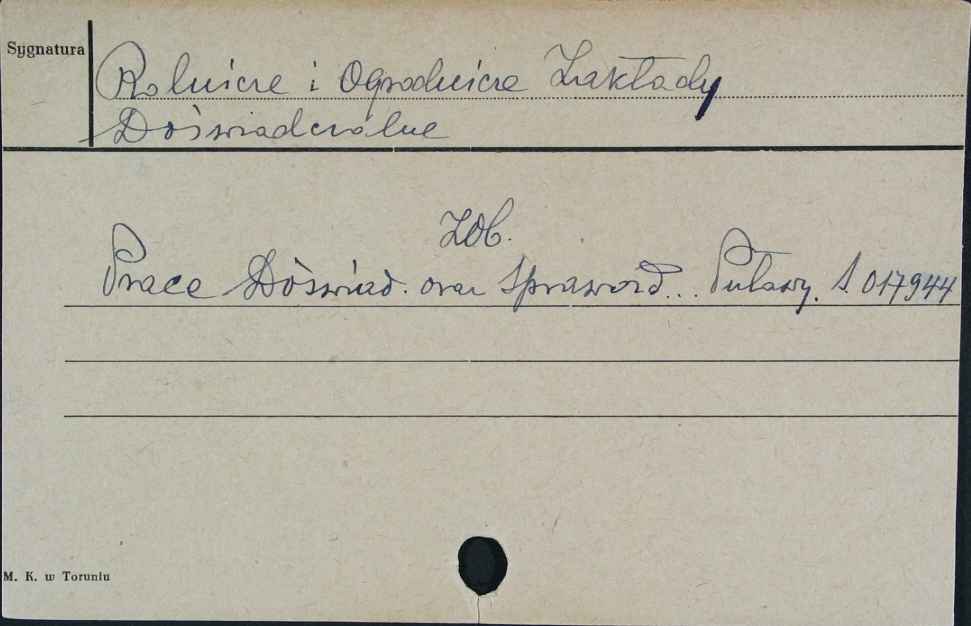 Sygnatura
Rolnicze i Ogrodnicze Zakłady
Doświadczalne
Zob.
Prace Doświad. oraz Sprawozd... Puławy. S. 017944
M. K. w Toruniu